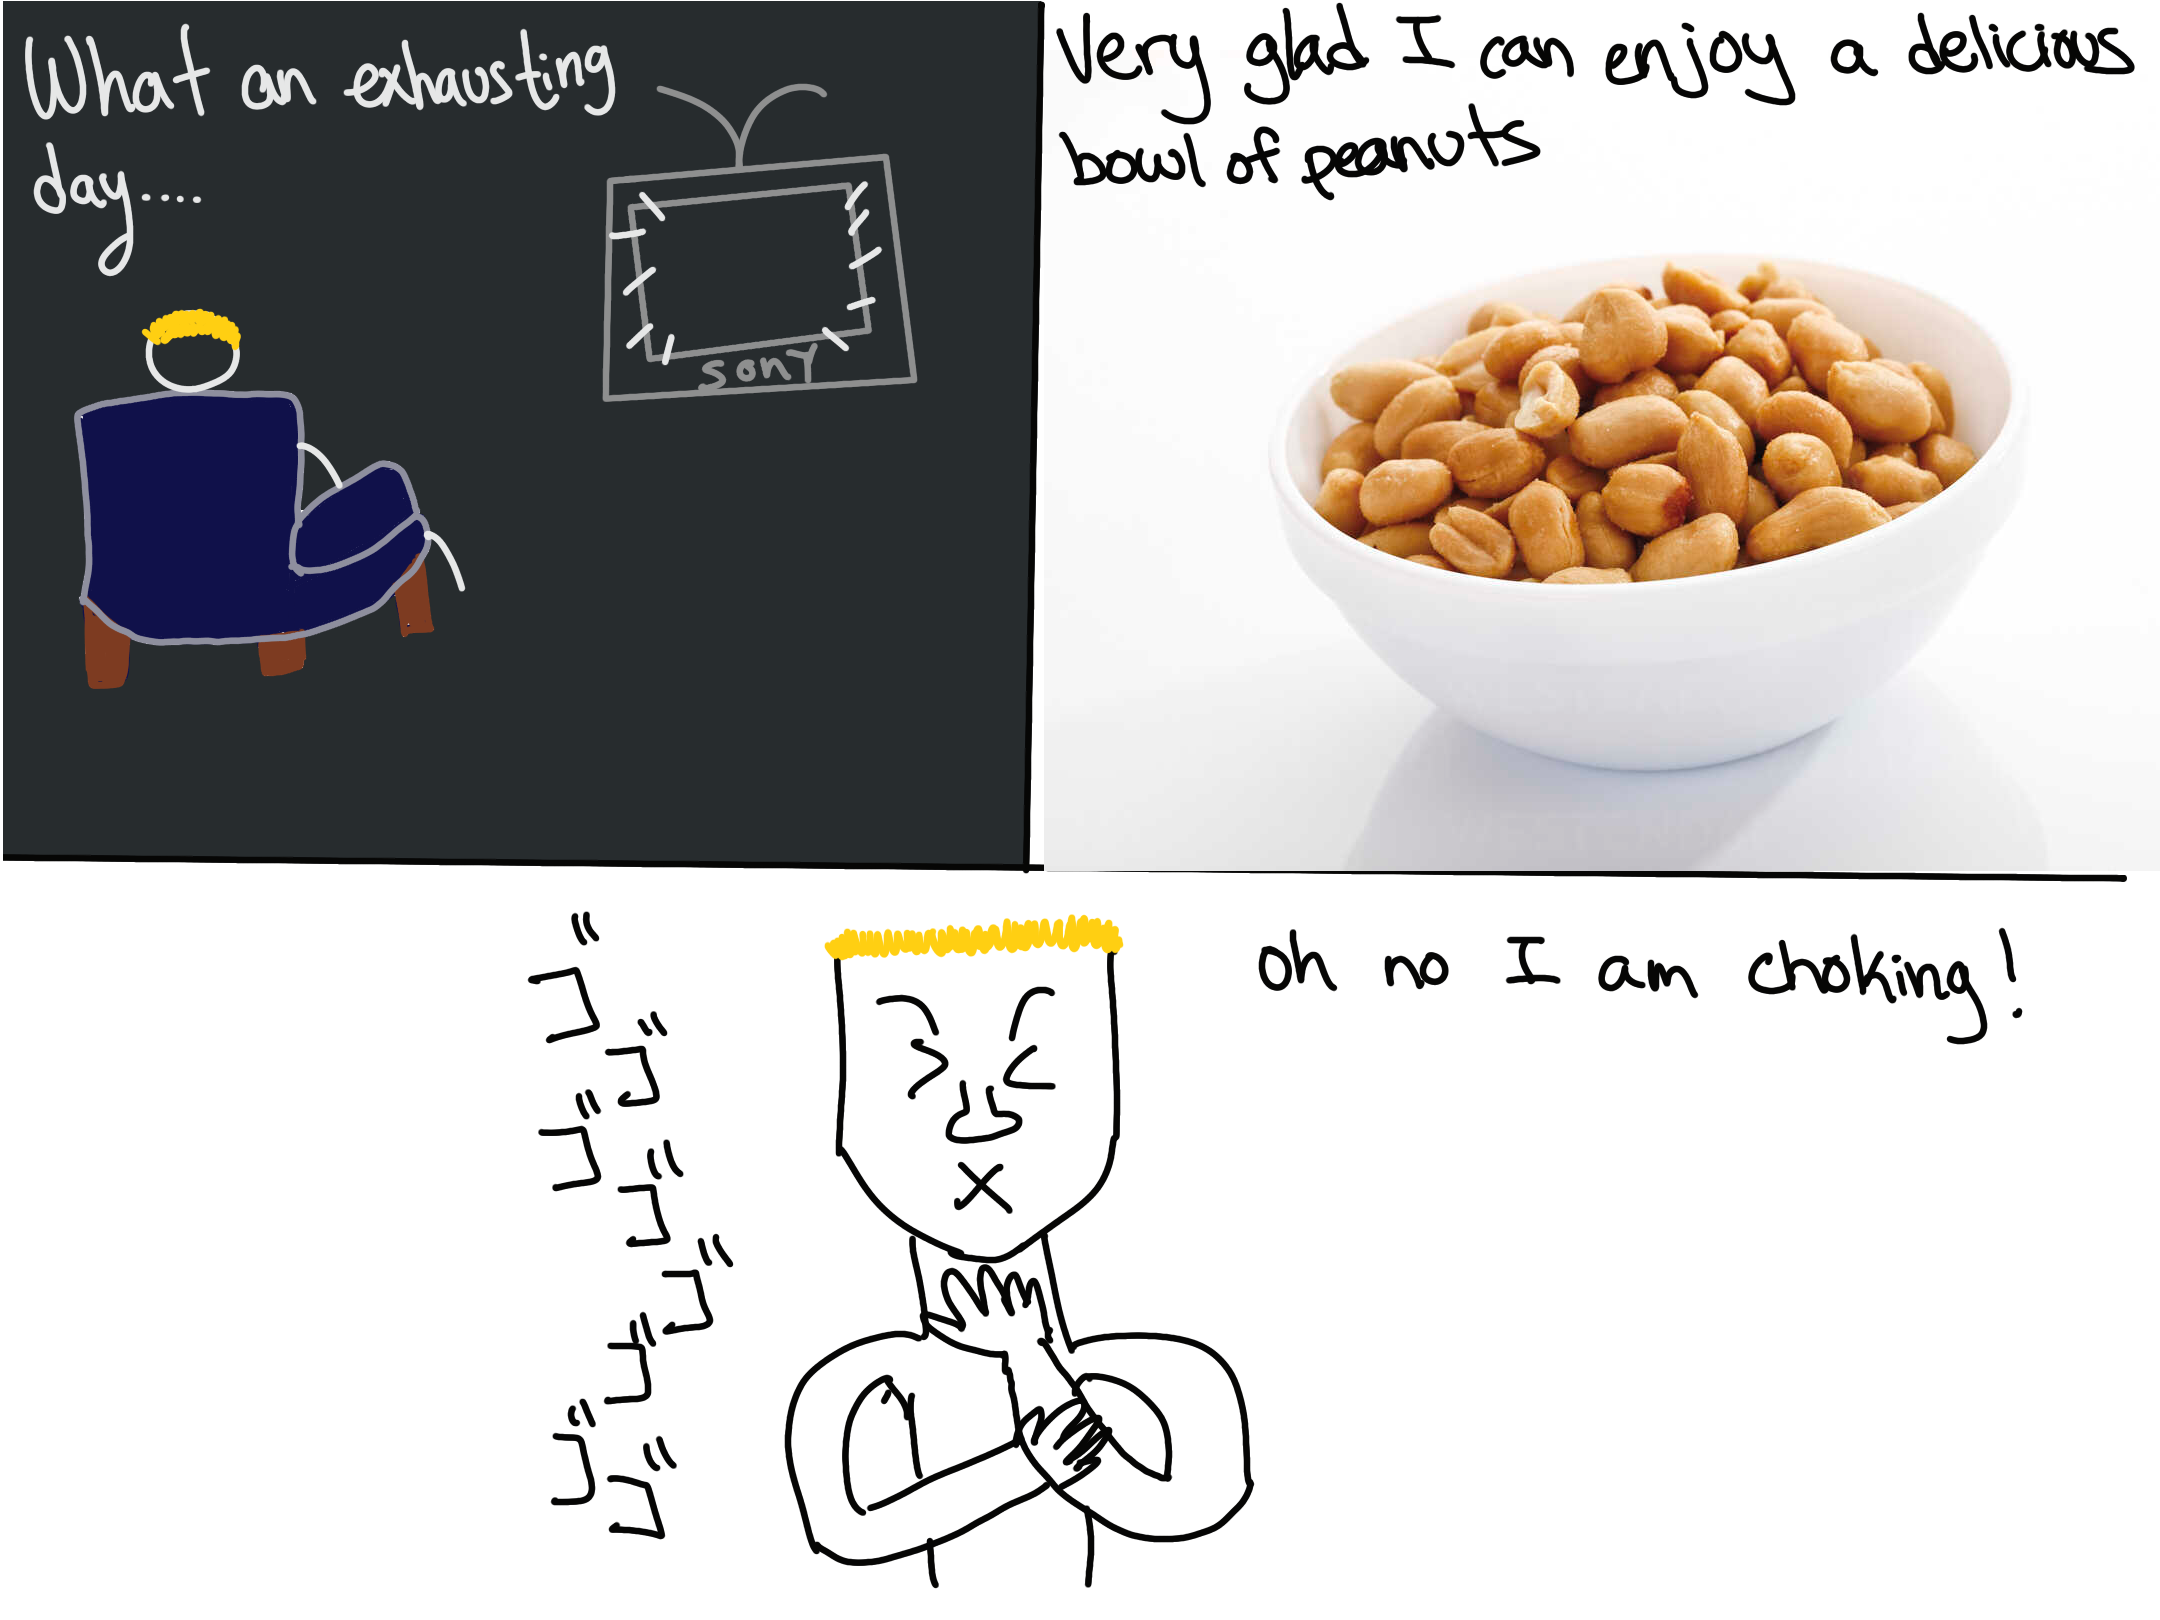 What an exhausting
day....
SonY
Very glad I can enjoy a delicious
bowl of peanuts
ゴゴゴゴゴゴゴゴ
oh no I am choking!